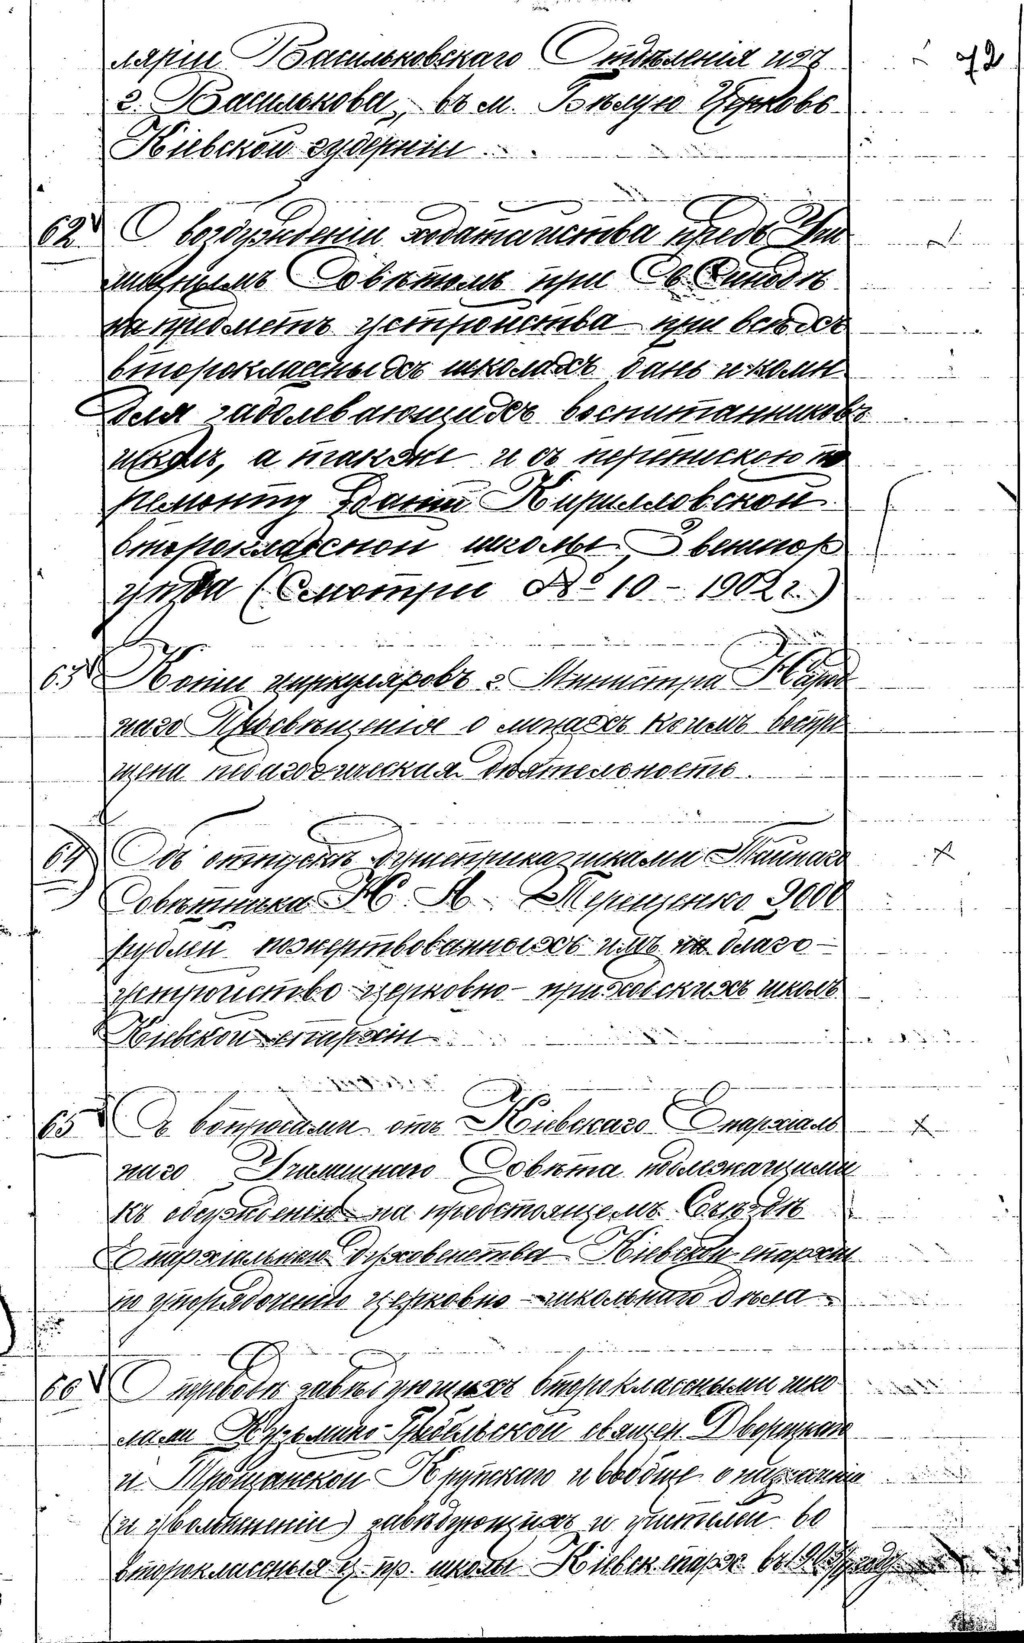 72
ляріи Васильковскаго Отдѣленія изъ
г. Василькова, въ м. Бѣлую Церковь
Кіевской губерніи
62 О возбужденіи ходатайства предъ Учи
лищнымъ Совѣтомъ при Св. Синодѣ
на предметъ устройства при всѣхъ
второклассныхъ школахъ бань и комн
для заболевающихъ воспитанниковъ
школъ, а также и съ перепискою по
ремонту зданій Кирилловской
второклассной школы, Звенигор
уѣзда (Смотри № 10 – 1902 г.)
63 Копіи циркуляровъ г. Министра Народ
наго Просвѣщенія о лицахъ коимъ воспре
щена педагогическая дѣятельность.
64 Объ отпускѣ душеприказчиками Тайнаго
Совѣтника Н. А. Терещенко 9000
рублей пожертвованныхъ имъ на благо-
устройство церковно-приходскихъ школъ
Кіевской епархіи
65 Съ вопросами отъ Кіевскаго Епархіаль
наго Училищнаго Совѣта подлежащими
къ обсужденію на предстоящемъ Съѣздѣ
Епархіальнаго Духовенства Кіевской епархіи
по упорядоченію церковно-школьнаго дѣла
66 О переводѣ завѣдующихъ второклассными шко
лами Кузьмино-Гребельской священ. Дворецкаго
и Трощанской Крутскаго и вообще о назначеніи
(и увольненіи) завѣдующихъ и учителей во
второклассныя ц.-пр. школы Кіевск. епарх. въ году